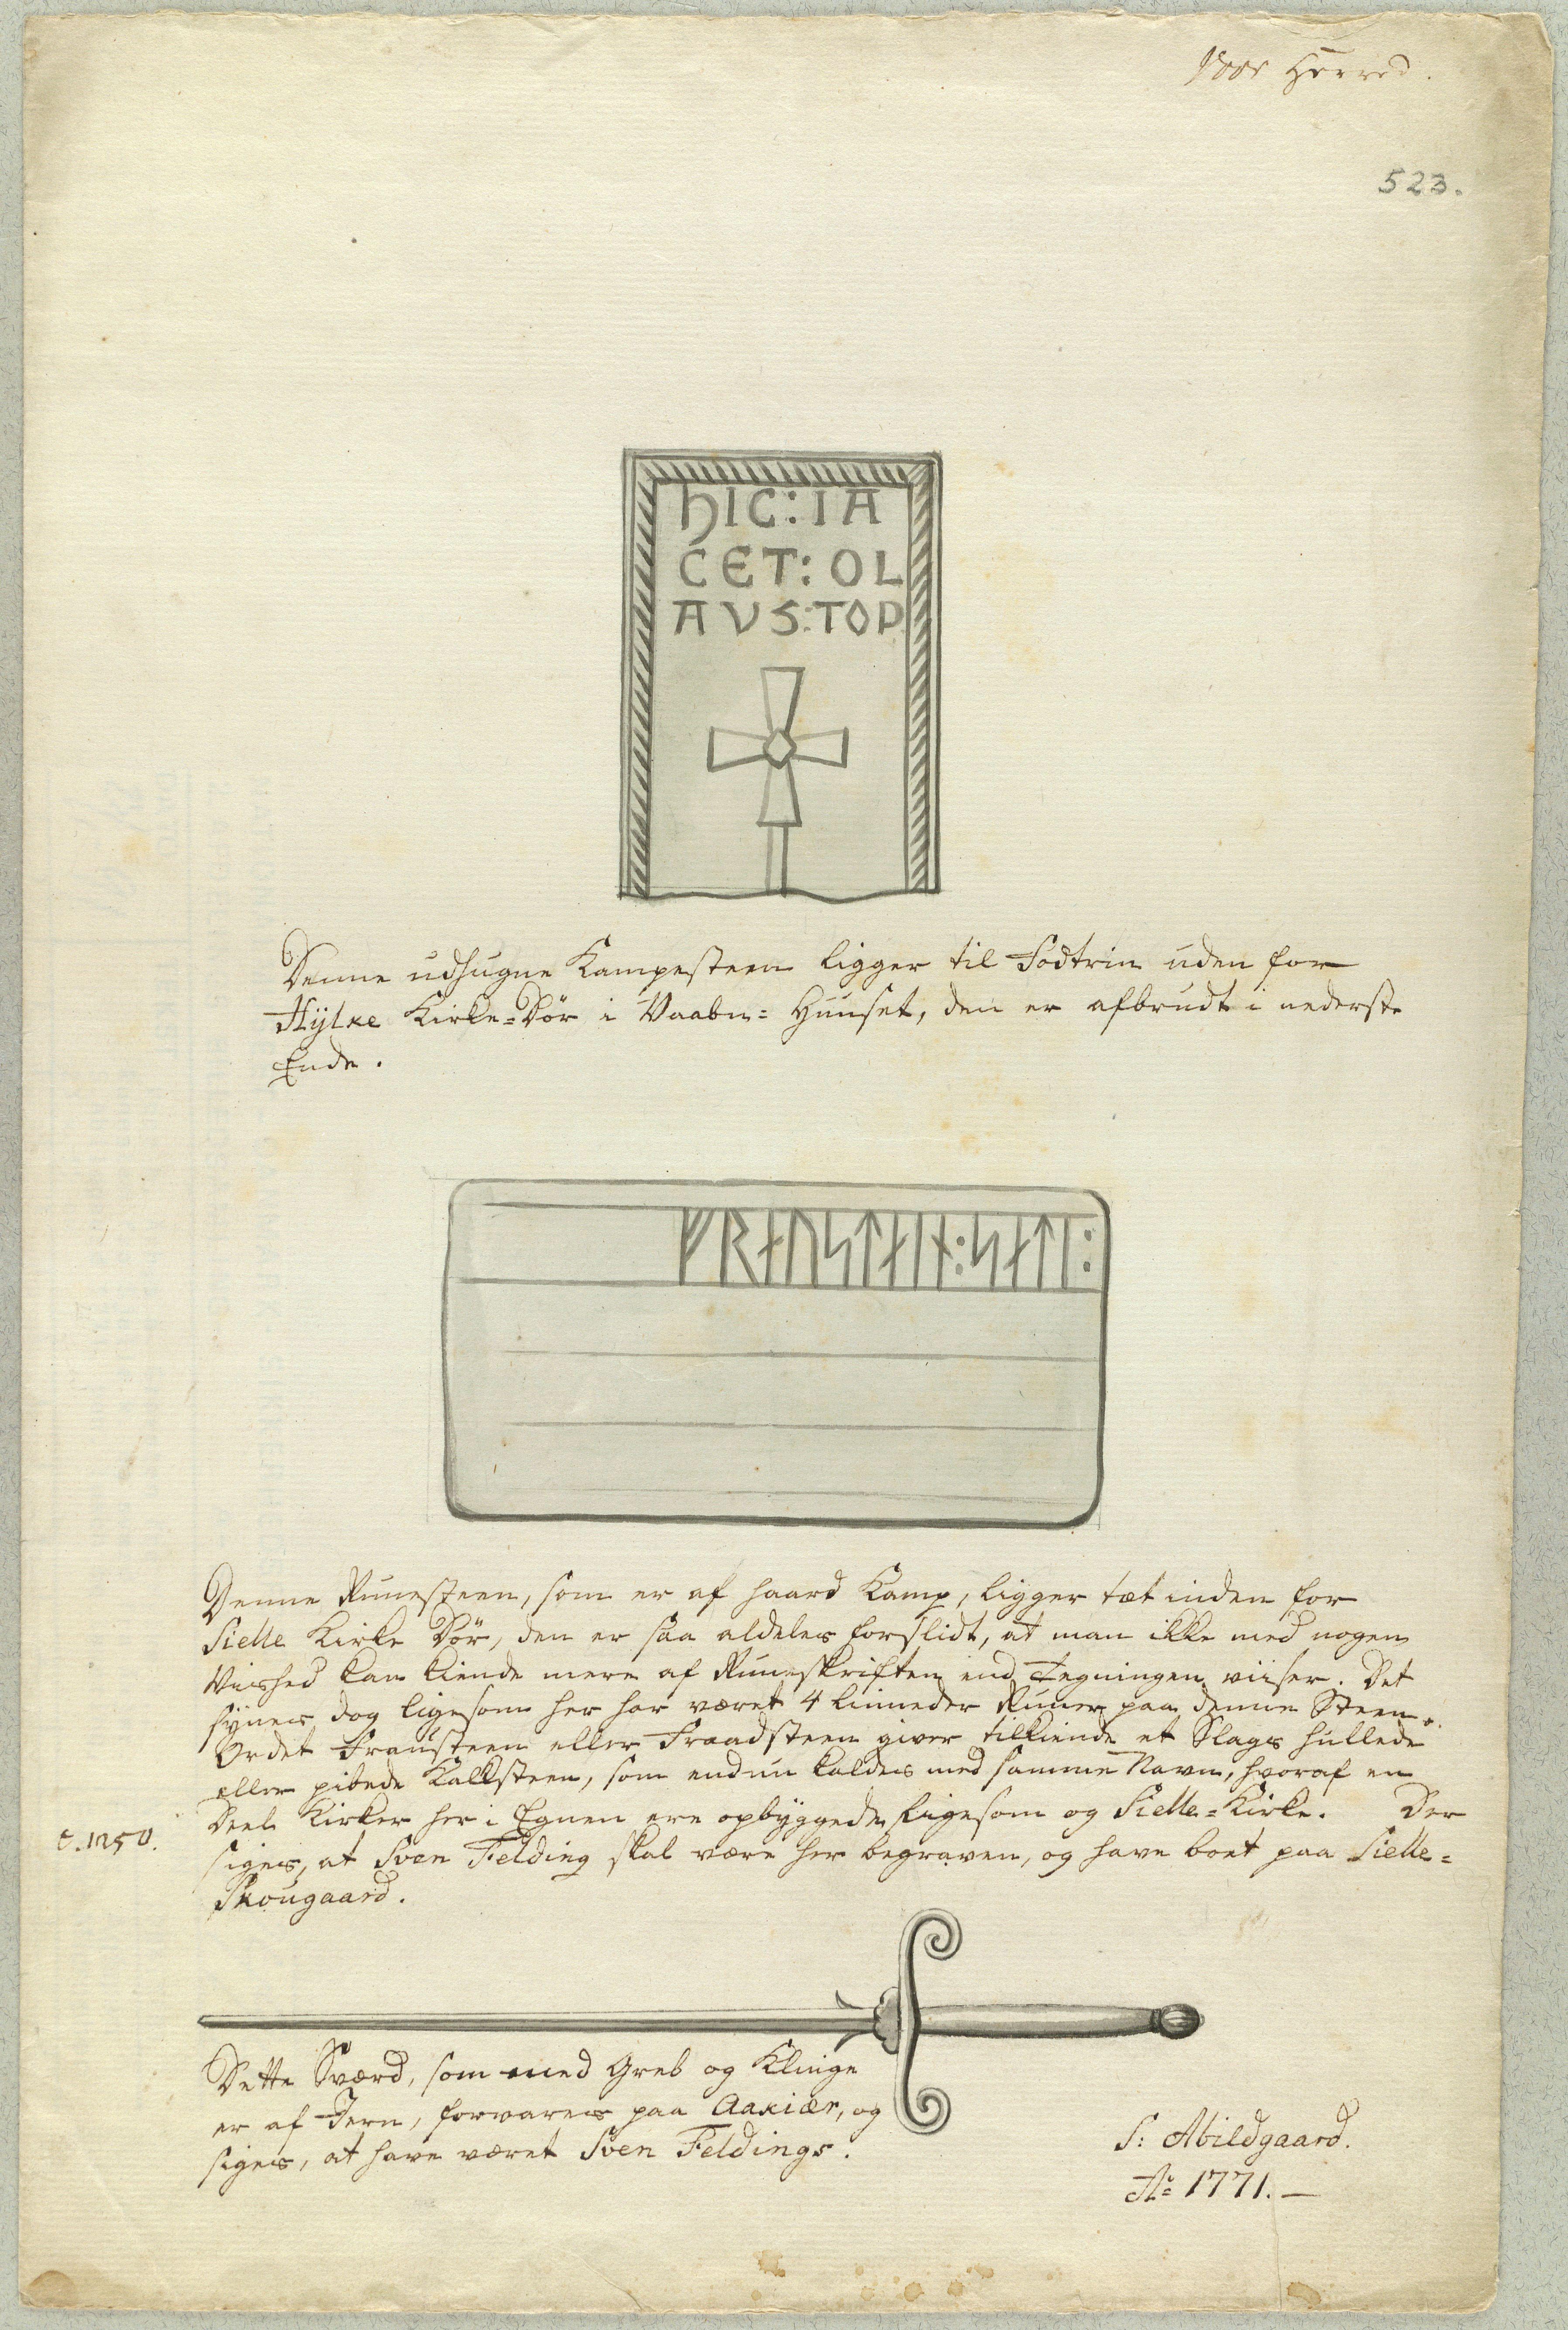 Voer Herred.
523.
HIC:IA
CET:OL
AVS:TOP
Denne udhugne Kampesteen ligger til Fodtrin uden for
Hylke Kirke=Dör i Vaabn=Huuset, den er afbrudt i nederste
Ende.
ᚠᚱᛅᚢᛋᛏᛅᛁᚾ:ᛋᛅᛏᛁ:
Denne Runesteen, som er af haard Kamp, ligger tæt inden for
Sielle Kirke Dör, den er saa aldeles forslidt, at man ikke med nogen
Vished kan kiende mere af Runeskriften end Tegningen viiser. Det
synes dog ligesom her har været 4 linneder Runer paa denne Steen.
Ordet Fraüsteen eller Fraadsteen giver tilkiende et Slags hullede
eller pibede Kalksteen, som endnu kaldes med samme Navn, hvoraf en
Deel Kirker her i Egnen ere opbyggede ligesom og Sielle=Kirke. Der
c.1250.
siges, at Sven Felding skal være her begraven, og have boet paa Sielle=
Skougaard.
Dette Sværd, som med Greb og Klinge
er af Jern, forvares paa Aakiær, og
siges, at have været Sven Feldings.
S: Abildgaard.
Aº 1771.—